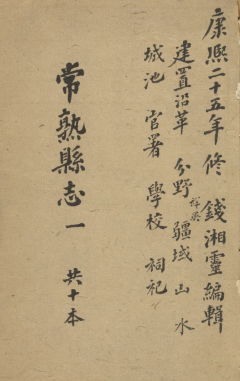 康熙二十五年修 錢湘靈編輯
建置沿革 分野 祥異 疆域 山水
城池 官署 學校 祠祀
常熟縣志 一 共十本